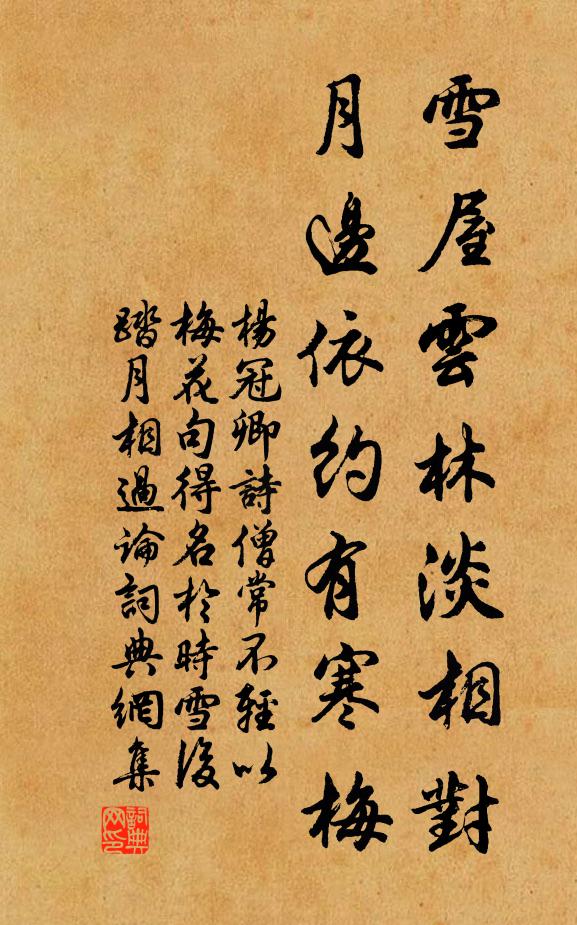 雪屋雲林淡相對
月邊依約有寒梅
楊冠卿詩僧常不輕以
梅花句得名於時雪後
踏月相過論詞典網集
詞典網印